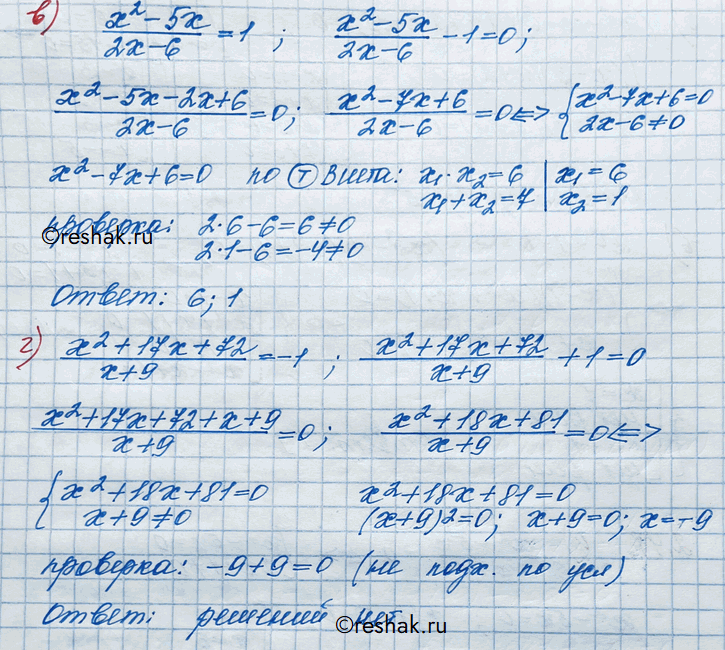 в) (x²-5x)/(2x-6) =1 ; (x²-5x)/(2x-6) -1=0;
(x²-5x-2x+6)/(2x-6) =0; (x²-7x+6)/(2x-6) =0 <=> { x²-7x+6=0
2x-6≠0
x²-7x+6=0 по Ⓣ Виета: x₁·x₂=6 | x₁=6
x₁+x₂=7 | x₂=1
проверка: 2·6-6=6≠0
©reshak.ru
2·1-6=-4≠0
Ответ: 6; 1
г) (x²+17x+72)/(x+9) =-1 ; (x²+17x+72)/(x+9) +1=0
(x²+17x+72+x+9)/(x+9) =0; (x²+18x+81)/(x+9) =0 <=>
{ x²+18x+81=0 x²+18x+81=0
x+9≠0 (x+9)2=0; x+9=0; x=-9
проверка: -9+9=0 (не подх. по усл)
Ответ: решений нет
©reshak.ru